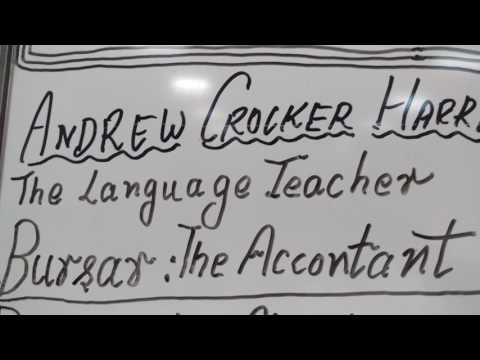 ANDREW CROCKER HARR
The Language Teacher
Bursar : The Accontant